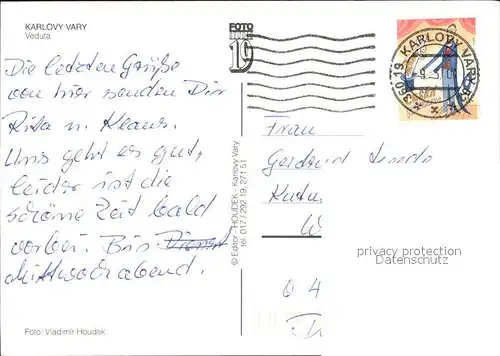 KARLOVY VARY
Veduta
Die letzten Grüße
von hier senden Dir
Rita u. Klaus.
Uns geht es gut,
leider ist die
schöne Zeit bald
vorbei. Bis Dienst
Mittwochabend.
Foto: Vladimír Houdek
© Editor - HOUDEK - Karlovy Vary
tel. 017 / 292 19, 271 51
FOTO
19
360 19 KARLOVY VARY
Frau
privacy protection
Datenschutz
0 4